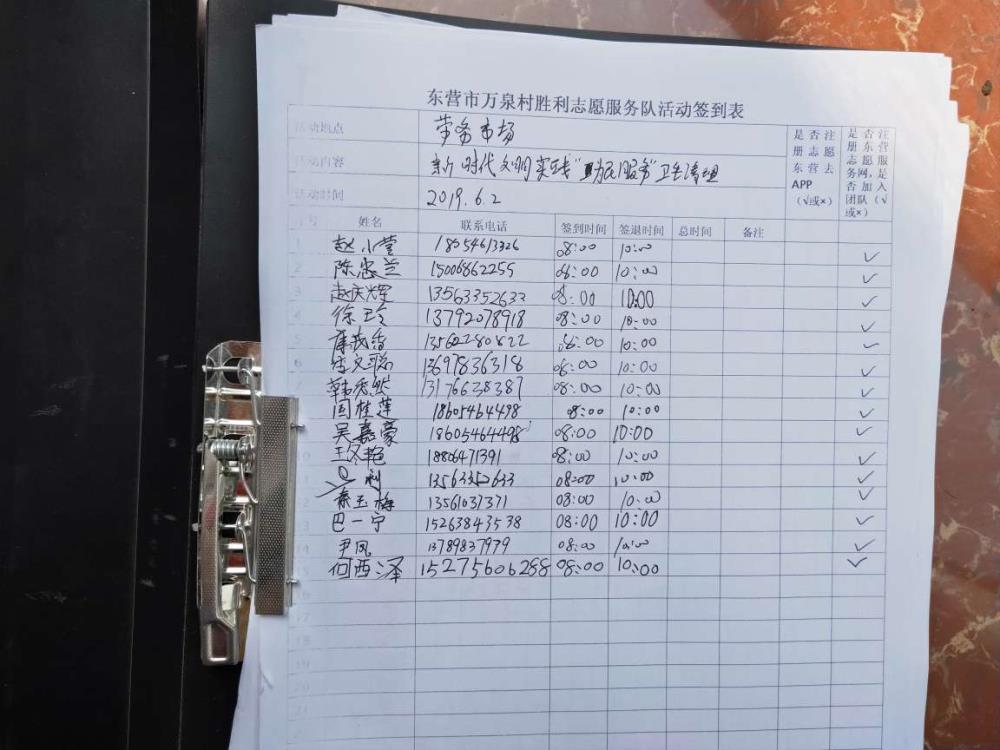 东营市万泉村胜利志愿服务队活动签到表
活动地点 劳务市场
活动内容 新时代文明实践"为民服务"卫生清理
活动时间 2019.6.2
是否注册志愿东营去APP(√或×)
是否注册东营志愿服务网,是否加入团队(√或×)
序号 姓名 联系电话 签到时间 签退时间 总时间 备注
1 赵小莹 18554613326 08:00 10:00 ✓
2 陈忠兰 15006862255 08:00 10:00 ✓
3 赵庆辉 13563352633 08:00 10:00 ✓
4 徐卫玲 13792078918 08:00 10:00 ✓
5 13562280822 08:00 10:00 ✓
6 13697836318 08:00 10:00 ✓
7 韩秀然 13176638387 08:00 10:00 ✓
周桂莲 18605464498 08:00 10:00 ✓
吴嘉豪 18605464498 08:00 10:00 ✓
10 王冬艳 18806471391 08:00 10:00 ✓
利 13563352633 08:00 10:00 ✓
秦玉梅 13561037371 08:00 10:00 ✓
13 巴一宁 15263843538 08:00 10:00 ✓
14 尹凤 13789837979 08:00 10:00 ✓
何西泽 15275606288 08:00 10:00 ✓
16
17
18
19
20
21